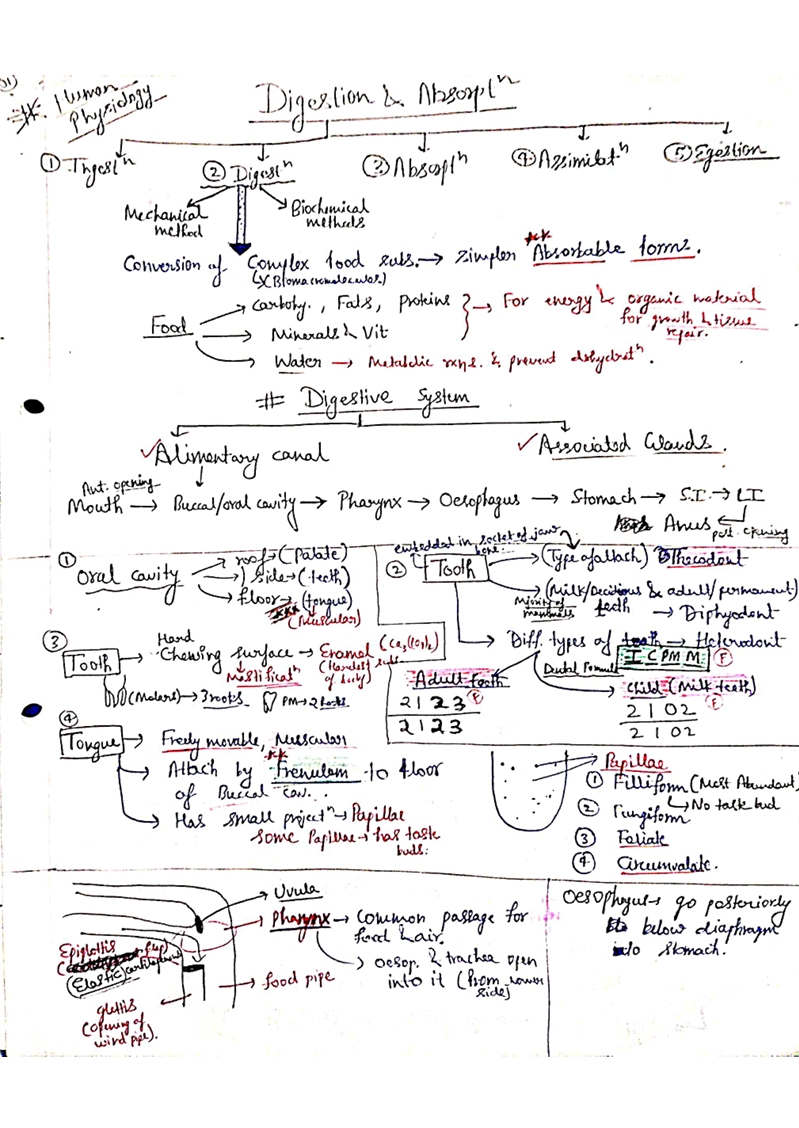 Human Physiology
Digestion & Absorptⁿ
① Ingestⁿ ② Digestⁿ ③ Absorptⁿ ④ Assimilatⁿ ⑤ Egestion
Mechanical method
Biochemical methods
Conversion of Complex food subs. → Simpler Absorbable forms.
(Biomacromolecules)
Food
Carbohy., Fats, Proteins
Minerals & Vit
→ For energy & organic material for growth & tissue repair.
Water → Metabolic rxns. & prevent dehydratⁿ.
# Digestive System
✓ Alimentary canal ✓ Associated Glands.
Ant. opening
Mouth → Buccal/oral cavity → Pharynx → Oesophagus → Stomach → S.I. → LI
Anus post. opening
① Oral cavity
roof → (Palate)
side → (teeth)
floor → (tongue)
(Muscular)
embedded in socket of jaw bone.
② Tooth
(Type of attach) Thecodont
(Milk/Decidious & adult/permanent) teeth → Diphyodont
Majority of mammals
Diff. types of teeth → Heterodont
Dental Formula I C PM M
Adult teeth
2 1 2 3
2 1 2 3
Child (Milk teeth)
2 1 0 2
2 1 0 2
③ Tooth
Hard
Chewing surface → Enamel
(Hardest subs. of body)
Mastificatⁿ
(Molars) → 3 roots. PM → 2 Roots
④ Tongue
Freely movable, Muscular
Attach by Frenulum to floor
of Buccal Cav...
Has small projectⁿ → Papillae
some Papillae → has taste
buds.
Papillae
① Filliform (Most Abundant)
No taste bud
② Fungiform
③ Foliate
④ Circumvalate.
Uvula
Pharynx → Common passage for
food & air.
Oesop. & trachea open
into it (from lower
side)
food pipe
Epiglottis
flap)
(Elastic) cartilaginous
glottis
(opening of
wind pipe).
Oesophagus → go posteriorly
below diaphragm
into stomach.